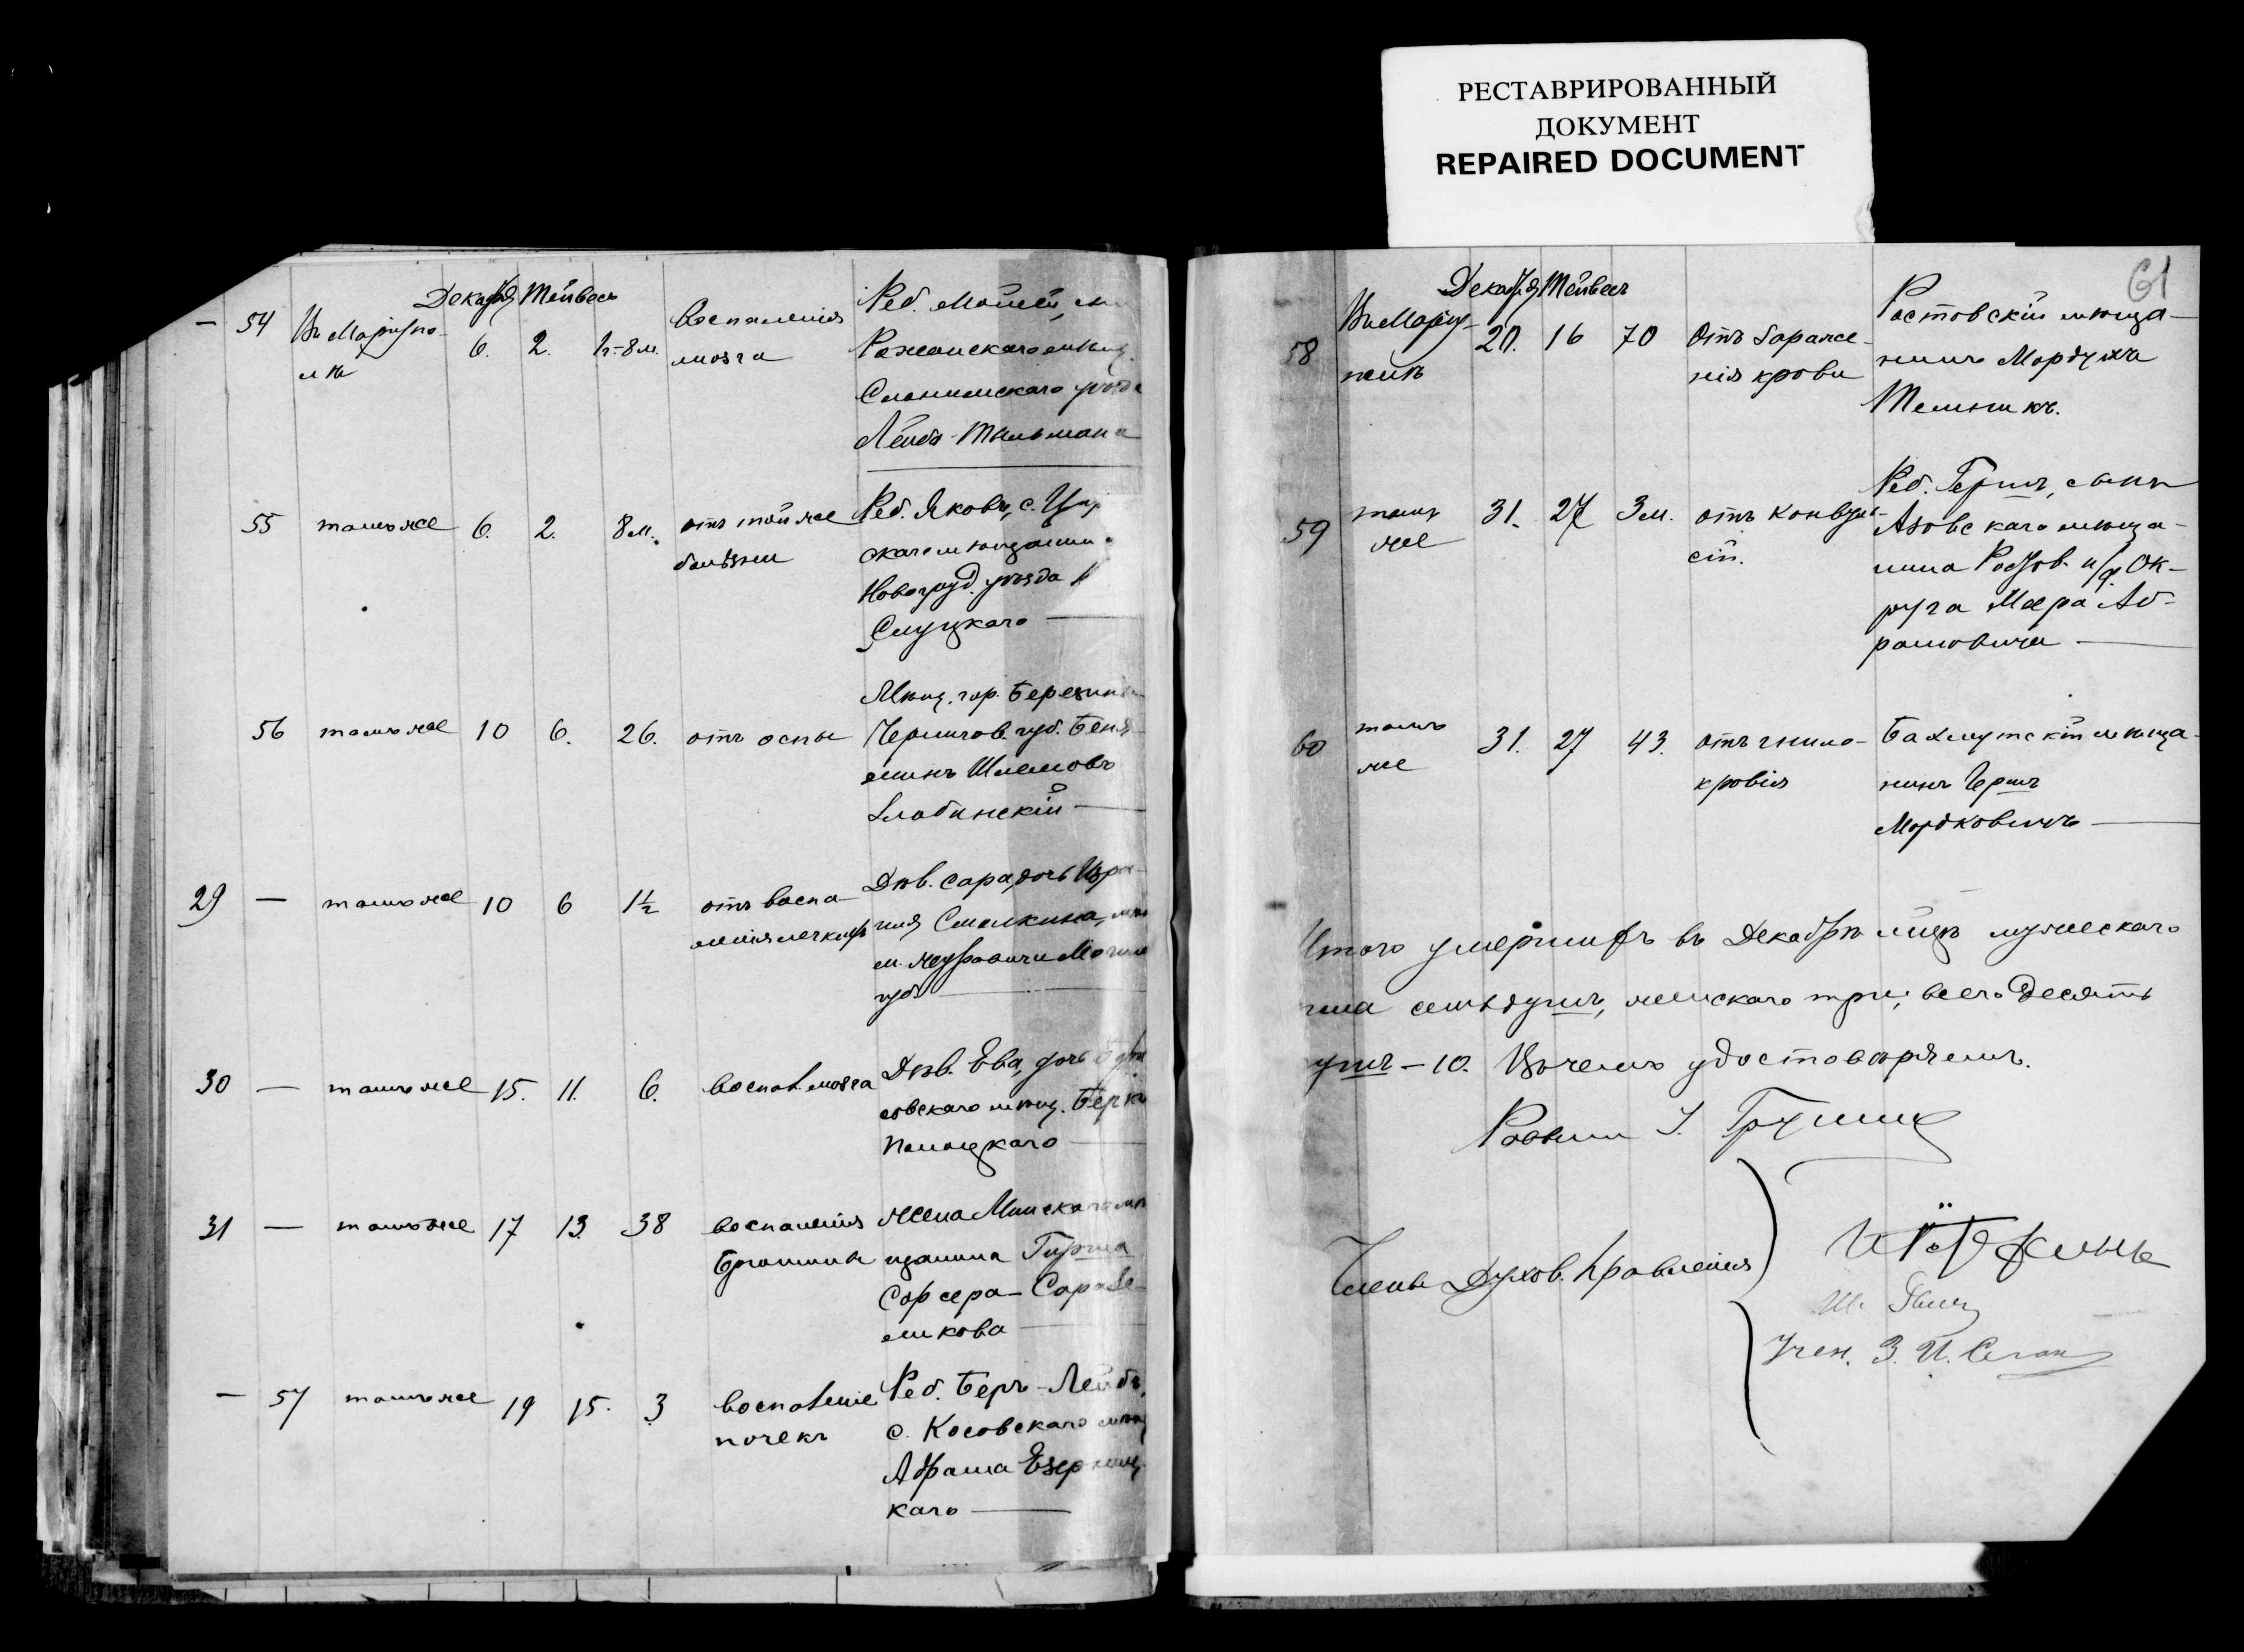 РЕСТАВРИРОВАННЫЙ
ДОКУМЕНТ
REPAIRED DOCUMENT
61
Декабря Тейвесъ
— 54 Въ Маріупо-
лѣ
6. 2. 1г.-8м.
Воспаленія
мозга
Реб. Мойсей,
Рожанскаго мѣщ.
Слонимскаго уѣзда
Лейба Тильмана
55 тамъ же 6. 2. 8 м. отъ той же
болѣзни
Реб. Яковъ, с.
скаго мѣщанина
Новогруд. уѣзда
Слуцкаго —
56 тамъ же 10 6. 26. отъ оспы
Мѣщ. гор. Березины
Чернигов. губ. Беня-
минъ Шлемовъ
Злобинскій —
29 — тамъ же 10 6 1½ отъ воспа-
ленія легкихъ
Дѣв. Сара, дочь Изра-
иля Смолкина,
губ. —
30 — тамъ же 15. 11. 6. воспал. мозга
Дѣв. Ева, дочь
совскаго мѣщ. Берка
Полоцкаго —
31 — тамъ же 17 13. 38 воспаленія
брюшины
жена Минскаго мѣ-
щанина Гирша
Сорсера —
— 57 тамъ же 19 15. 3 воспаленіе
почекъ
Реб. Беръ-Лейбъ,
с. Косовскаго мѣщ.
Абрама Езерниц-
каго —
Декабря Тейвесъ
58 Въ Маріу-
20. 16 70 отъ зараже-
нія крови
Ростовскій мѣща-
нинъ Мордухъ
Мельникъ.
59 тамъ
же
31. 27 3 м. отъ конвуль-
сій.
Реб. Гершъ, сынъ
Азовскаго мѣща-
нина Ростов. н/Д. Ок-
руга Меера Аб-
рамовича —
60 тамъ
же
31. 27 43. отъ гнило-
кровія
Бахмутскій мѣща-
нинъ Гершъ
Мордковичъ —
Итого умершихъ въ Декабрѣ м-цѣ мужескаго
пола семь душъ, женскаго три; всего десять
душъ — 10. Въ чемъ удостовѣряемъ.
Раввинъ
Члены Духов. Правленія
Учен. З. И.